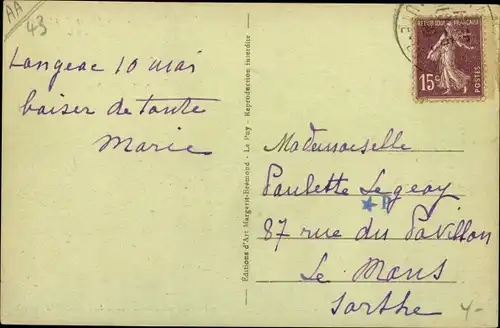 AA
43
Langeac 10 mai
baiser de tante
Marie
Editions d'Art Margerit-Bremond - Le Puy - Reproduction interdite
REPUBLIQUE FRANÇAISE
15c
POSTES
Mademoiselle
Paulette Legeay
87 rue du Pavillon
Le Mans
Sarthe
4-